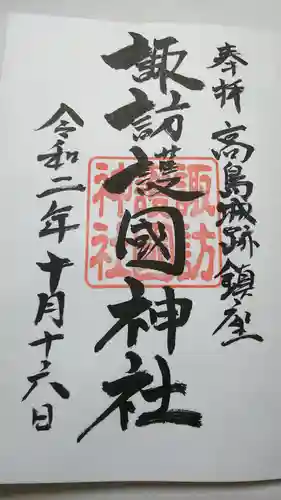 奉拝 高島城跡鎮座
諏訪護國神社
令和二年十月十六日
諏訪
護國
神社